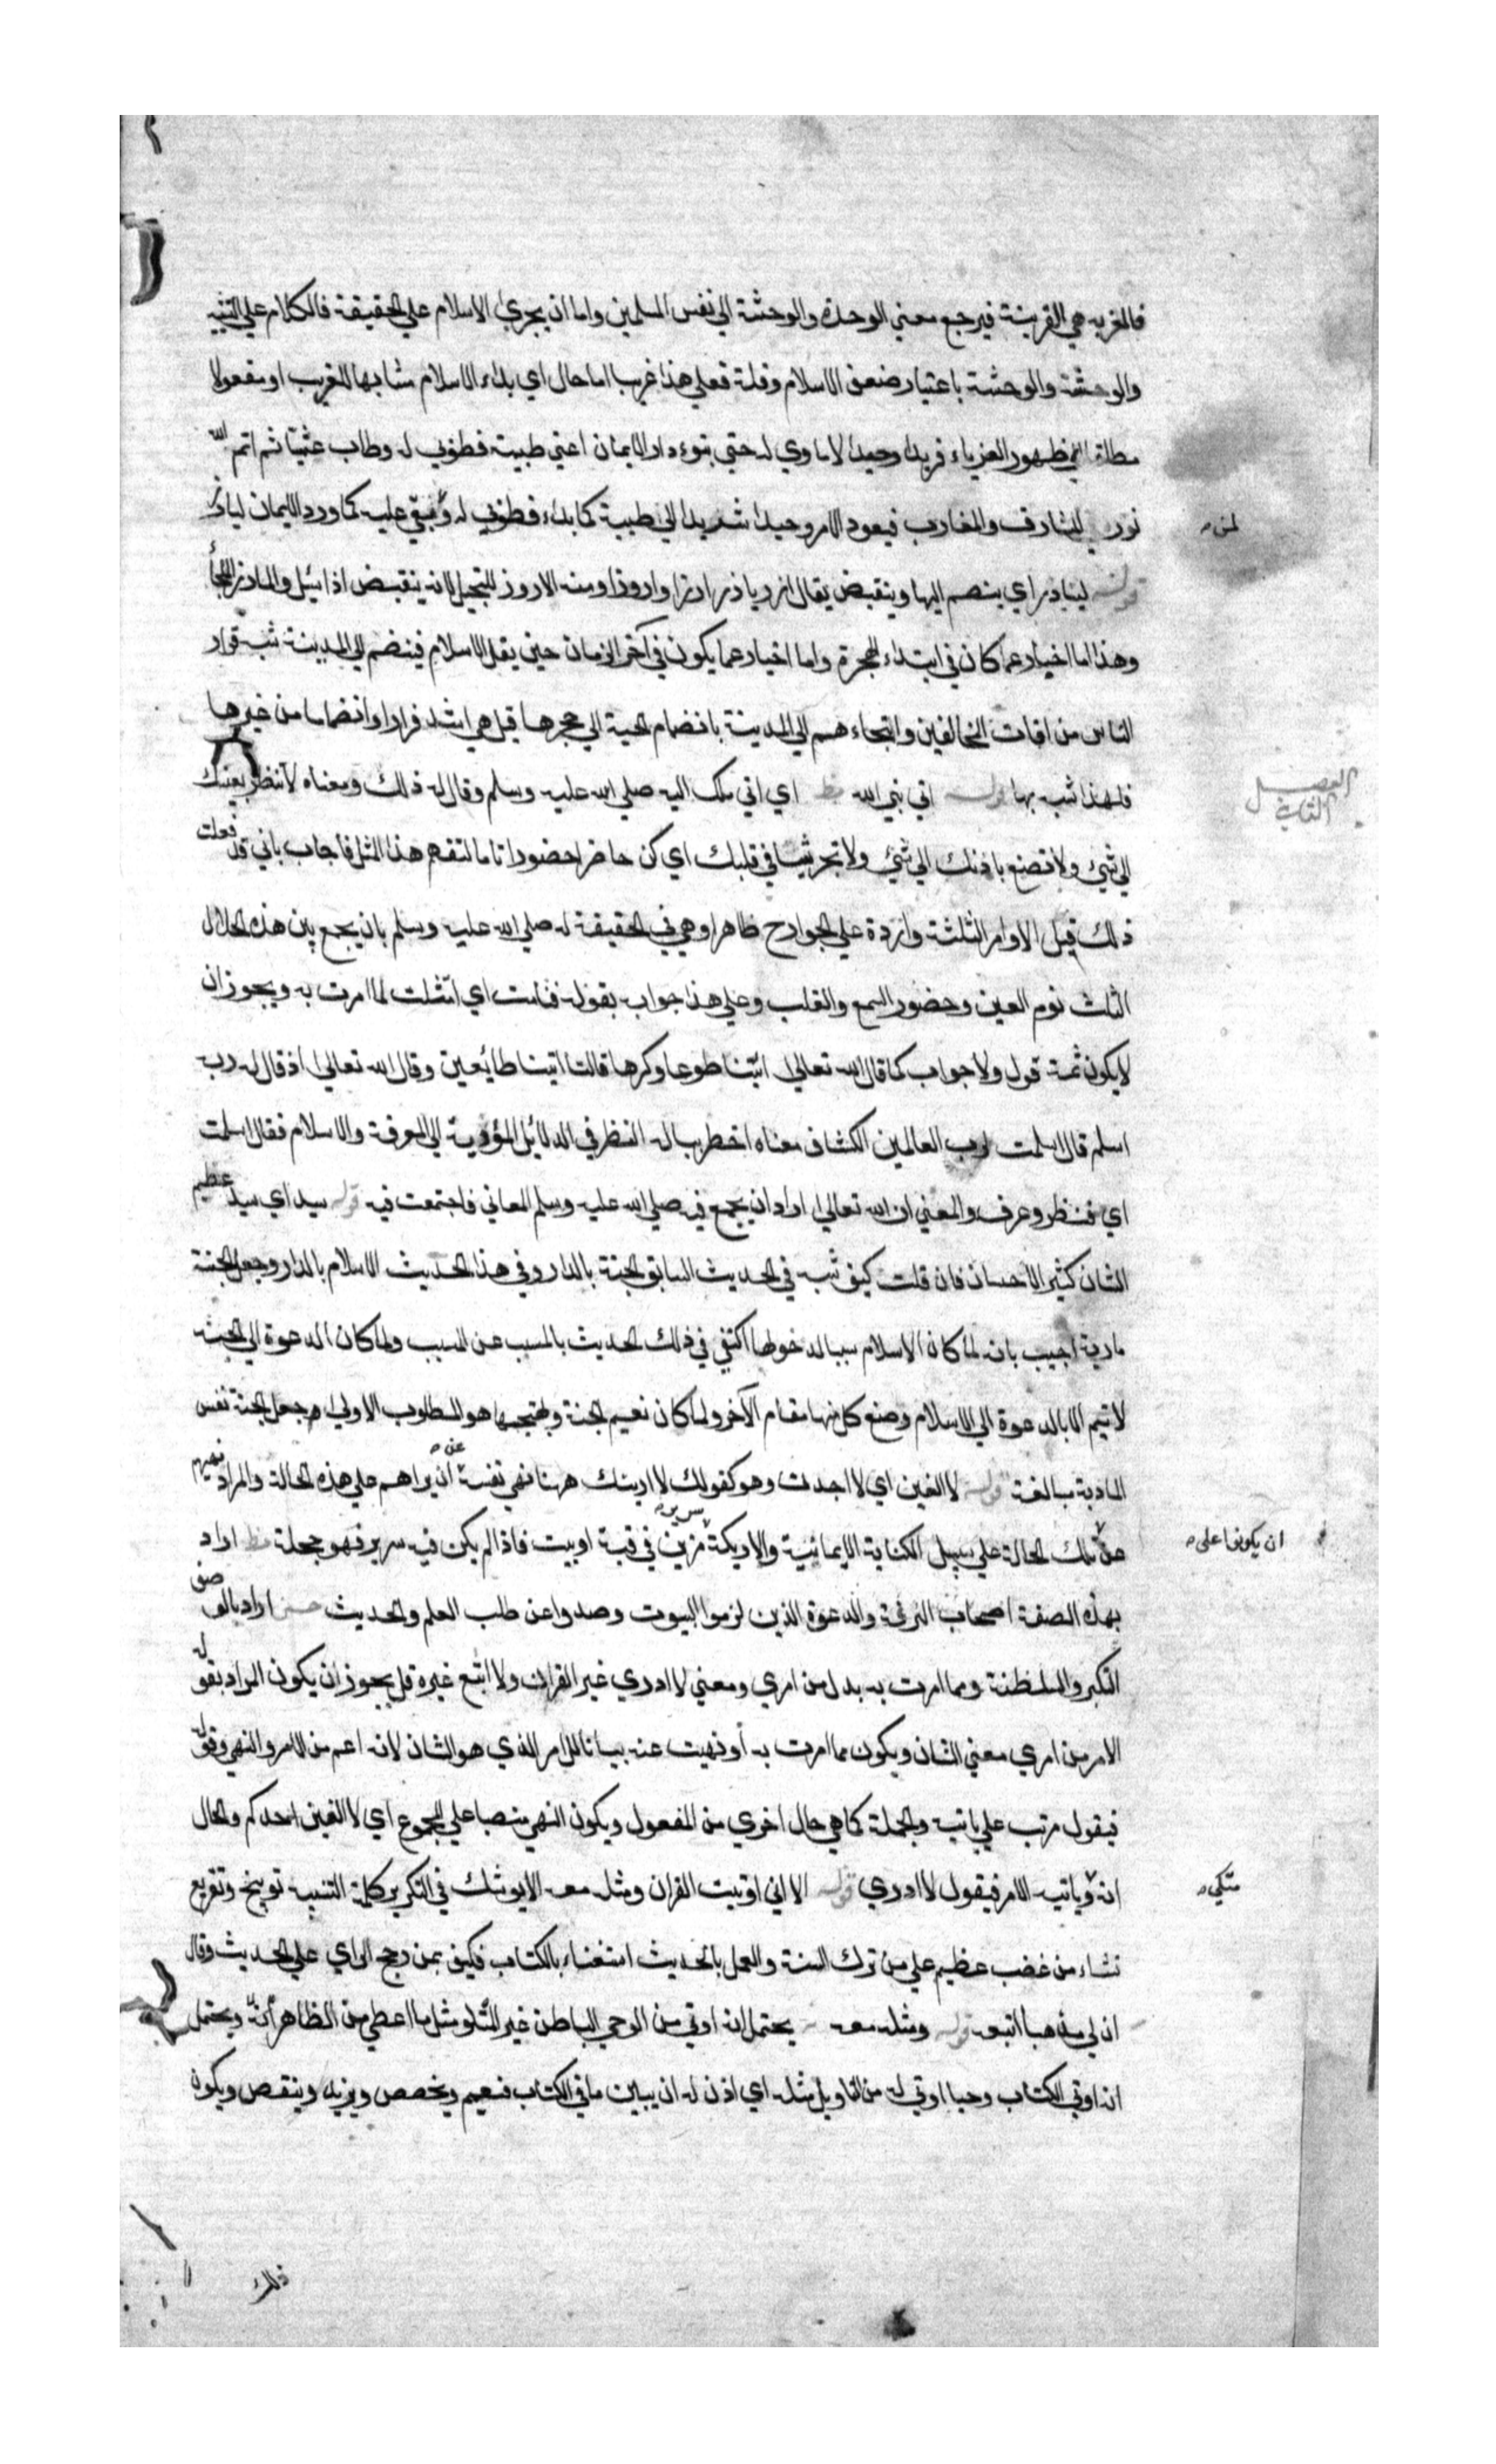 فالغربة هي القرينة فيرجع معني الوحدة والوحشة الي نفس المسلمين واما ان يجري الاسلام علي الحقيقة فالكلام علي التشبيه
والوحشة والوحشة باعتبار ضعف الاسلام وقلة فعلي هذا غريبا اما حال اي بداء الاسلام مشابها للغريب او مفعولا
مطلقا اي ظهور الغرباء فريدا وحيدا لا ماوي له حتي تبوء دار الايمان اعني طيبة فطوبي له وطاب عشيا ثم اتم الله
نوره المشارق والمغارب فيعود الامر وحيدا شديدا الي طيبة كما بداء فطوبي له ويبقي عليه كما ورد الايمان ليارز
لمن
قوله ليارز اي ينضم اليها وينقبض يقال ارز يارز ارزا واروزا ومنه الاروز للبخيل لانه ينقبض اذا سئل والمارز الملجأ
وهذا اما اخبار عما كان في ابتداء الهجرة واما اخبار عما يكون في آخر الزمان حين يقل الاسلام فينضم الي المدينة شبه قرار
الناس من افات المخالفين والتجاءهم الي المدينة بانضمام الحية الي حجرها قيل هي اشد فرارا وانضماما من غيرها
فلهذا شبه بها قوله اتي نبي الله اي اتي ملك اليه صلي الله عليه وسلم وقال له ذلك ومعناه لا تنظر بعينك
الفصل الثاني
الي شيئ ولا تصنع باذنك الي شيئ ولا تجر شيئا في قلبك اي كن حاضرا حضورا تاما لتفهم هذا المثل فاجاب باني قد فعلت
ذلك قيل الاوامر الثلثة واردة علي الجوارح ظاهرا وهي في الحقيقة له صلي الله عليه وسلم بان يجمع بين هذه الخلال
الثلث نوم العين وحضور السمع والقلب وعلي هذا جواب بقوله فنامت اي امتثلت لما امرت به ويجوز ان
لا يكون ثمة قول ولا جواب كما قال الله تعالي ائتنا طوعا وكرها قالتا اتينا طائعين وقال الله تعالي اذ قال له رب
اسلم قال اسلمت لرب العالمين الكشاف معناه اخطر بباله النظر في الدلائل المؤدية الي المعرفة والاسلام فقال اسلمت
اي فنظر وعرف والمعني ان الله تعالي اراد ان يجمع فيه صلي الله عليه وسلم المعاني فاجتمعت فيه قوله سيد اي سيد عظيم
الشان كثير الاحسان فان قلت كيف شبه في الحديث السابق الجنة بالدار وفي هذا الحديث الاسلام بالدار وجعل الجنة
مادبة اجيب بانه لما كان الاسلام سببا لدخولها اكتفي في ذلك الحديث بالمسبب عن السبب ولما كان الدعوة الي الجنة
لا تتم الا بالدعوة الي الاسلام وضع كل منها مقام الآخر ولما كان نعيم الجنة وبهجتها هو المطلوب الاولي جعل الجنة نفس
المادبة مبالغة قوله لا الفين اي لا اجدن وهو كقولك لا ارينك ههنا نهي نفسه عن ان يراهم علي هذه الحالة والمراد نهيهم
عن تلك الحالة علي سبيل الكناية الايمائية والاريكة سرير مزين في قبة او بيت فاذا لم يكن فيه سرير فهو حجلة اراد
ان يكونوا على
بهذه الصفة اصحاب الترفة والدعوة الذين لزموا البيوت وصدوا عن طلب العلم والحديث اراد بالوصف
التكبر والسلطنة ومما امرت به بدل من امري ومعني لا ادري غير القران ولا اتبع غيره قل يجوز ان يكون المراد بقوله
الامر من امري معني الشان ويكون مما امرت به أو نهيت عنه بيانا للامر الذي هو الشان لانه اعم من الامر والنهي وقوله
فيقول مرتب علي ياتيه والجملة كما هي حال اخري من المفعول ويكون النهي منصبا علي المجموع اي لا الفين احدكم والحال
انه وياتيه الامر فيقول لا ادري قوله الا اني اوتيت القران ومثله معه الا يوشك في التكرير كلمة التنبيه توبيخ وتقريع
متكي
نشاء من غضب عظيم علي من ترك السنة والعمل بالحديث استغناء بالكتاب فكيف بمن رجح الراي علي الحديث وقال
ان لي مذهبا اتبعه قوله ومثله معه يحتمل انه اوتي من الوحي الباطن غير المتلو مثل ما اعطي من الظاهر ويحتمل
انه اوتي الكتاب وحيا اوتي له من التاويل مثله اي اذن له ان يبين ما في الكتاب فيعم ويخصص ويزيد وينقص ويكون
ذلك